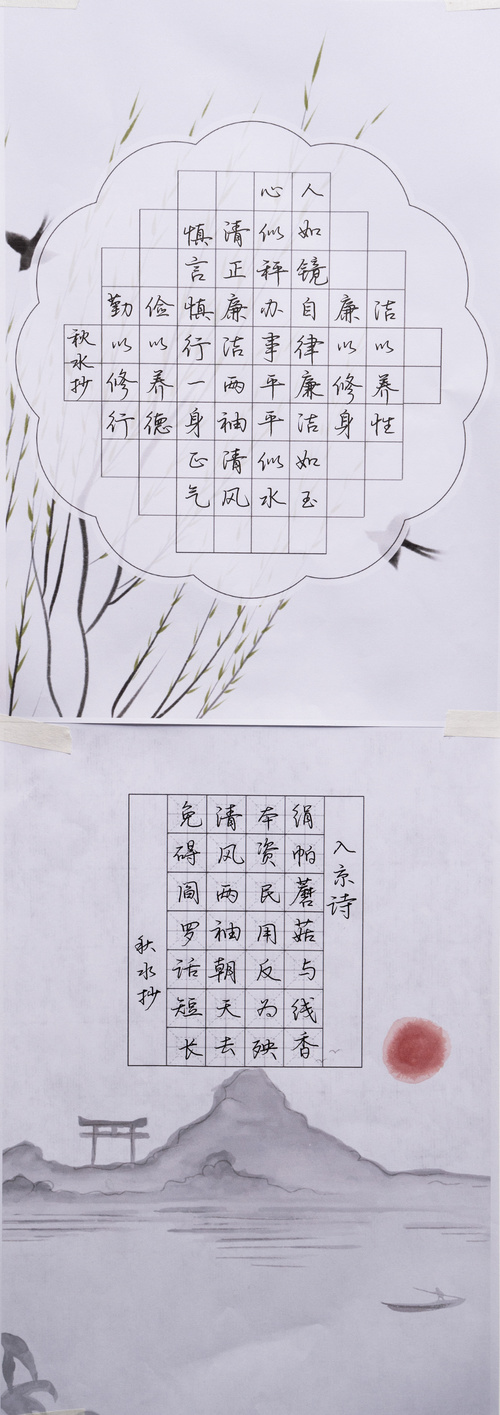 洁以养性
廉以修身
人如镜自律廉洁如玉
心似秤办事平平似水
清正廉洁两袖清风
慎言慎行一身正气
俭以养德
勤以修行
秋水抄
入京诗
绢帕蘑菇与线香
本资民用反为殃
清风两袖朝天去
免碍阎罗话短长
秋水抄